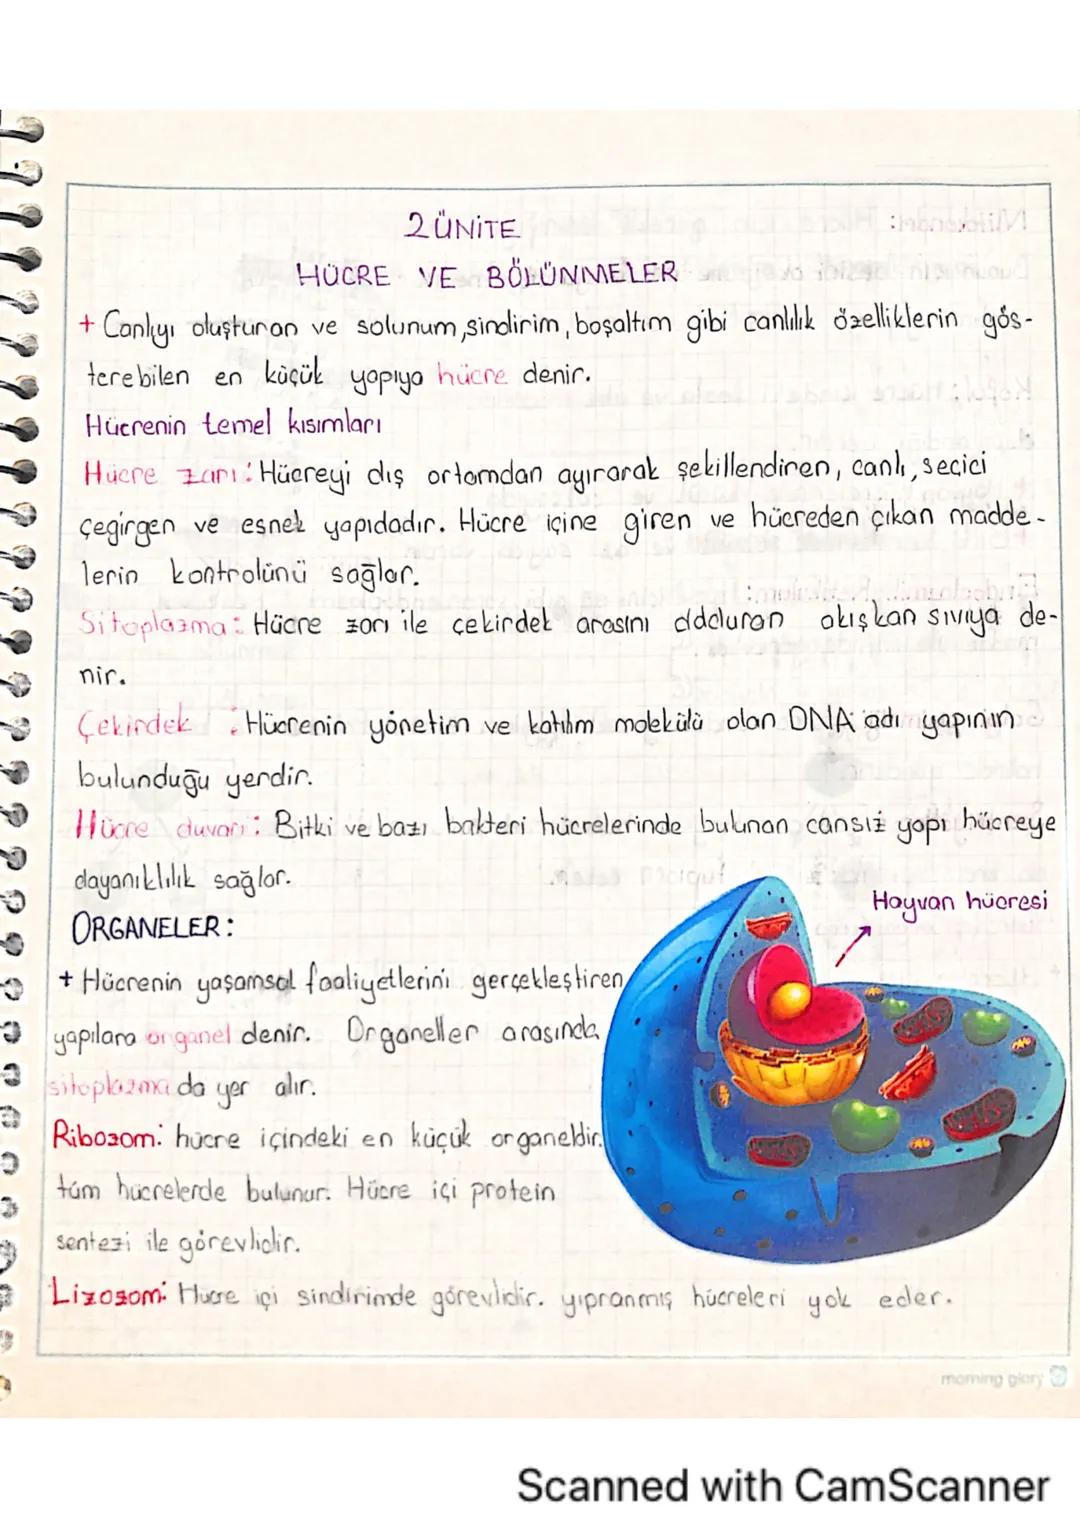 2ÜNİTE
HÜCRE VE BÖLÜNMELER
+ Canlıyı oluşturan ve solunum,sindirim, boşaltım gibi canlılık özelliklerin gös-
terebilen en küçük yapıya hücre denir.
Hücrenin temel kısımları
Hücre zarı: Hücreyi dış ortamdan ayırarak şekillendiren, canlı, secici
çegirgen ve esnek yapıdadır. Hücre içine giren ve hücreden çıkan madde-
lerin kontrolünü sağlar.
Sitoplazma: Hücre zarı ile çekirdek arasını ddoluran akışkan sıvıya de-
nir.
Çekirdek : Hücrenin yönetim ve katılım molekülü olan DNA adı yapının
bulunduğu yerdir.
Hücre duvarı: Bitki ve bazı bakteri hücrelerinde bulunan cansız yapı hücreye
dayanıklılık sağlar.
Hayvan hücresi
ORGANELER:
+ Hücrenin yaşamsal faaliyetlerini gerçekleştiren
yapılara organel denir. Organeller arasında
sitoplazma da yer alır.
Ribozom: hücre içindeki en küçük organeldir.
tüm hücrelerde bulunur. Hücre içi protein
sentezi ile görevlidir.
Lizozom: Hücre içi sindirimde görevlidir. yıpranmış hücreleri yok eder.
morning glory
Scanned with CamScanner